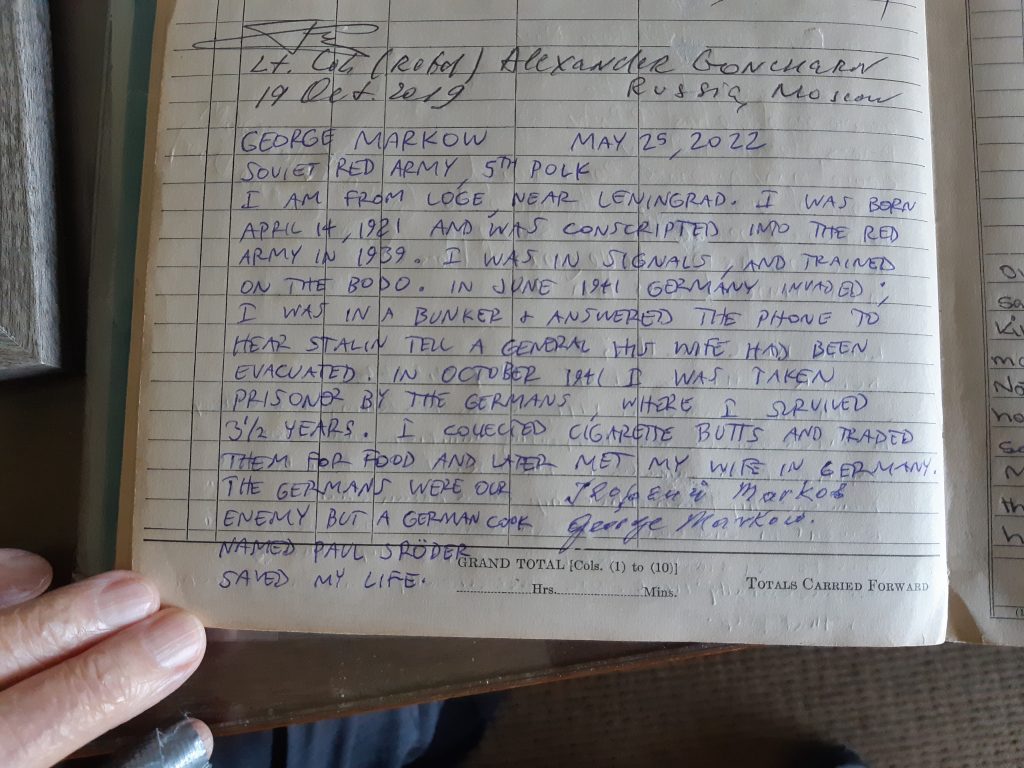 Lt. Col. (Rebel) Alexander Goncharn
19 Oct. 2019 Russia, Moscow
GEORGE MARKOW MAY 25, 2022
SOVIET RED ARMY, 5TH POLK
I AM FROM LOGE, NEAR LENINGRAD. I WAS BORN
APRIL 14, 1921 AND WAS CONSCRIPTED INTO THE RED
ARMY IN 1939. I WAS IN SIGNALS, AND TRAINED
ON THE BODO. IN JUNE 1941 GERMANY INVADED;
I WAS IN A BUNKER & ANSWERED THE PHONE TO
HEAR STALIN TELL A GENERAL HIS WIFE HAD BEEN
EVACUATED. IN OCTOBER 1941 I WAS TAKEN
PRISONER BY THE GERMANS, WHERE I SURVIVED
3 1/2 YEARS. I COLLECTED CIGARETTE BUTTS AND TRADED
THEM FOR FOOD AND LATER MET MY WIFE IN GERMANY.
THE GERMANS WERE OUR Markov
ENEMY BUT A GERMAN COOK George Markow.
NAMED PAUL SRÖDER
SAVED MY LIFE.
GRAND TOTAL [Cols. (1) to (10)]
Hrs. Mins. TOTALS CARRIED FORWARD